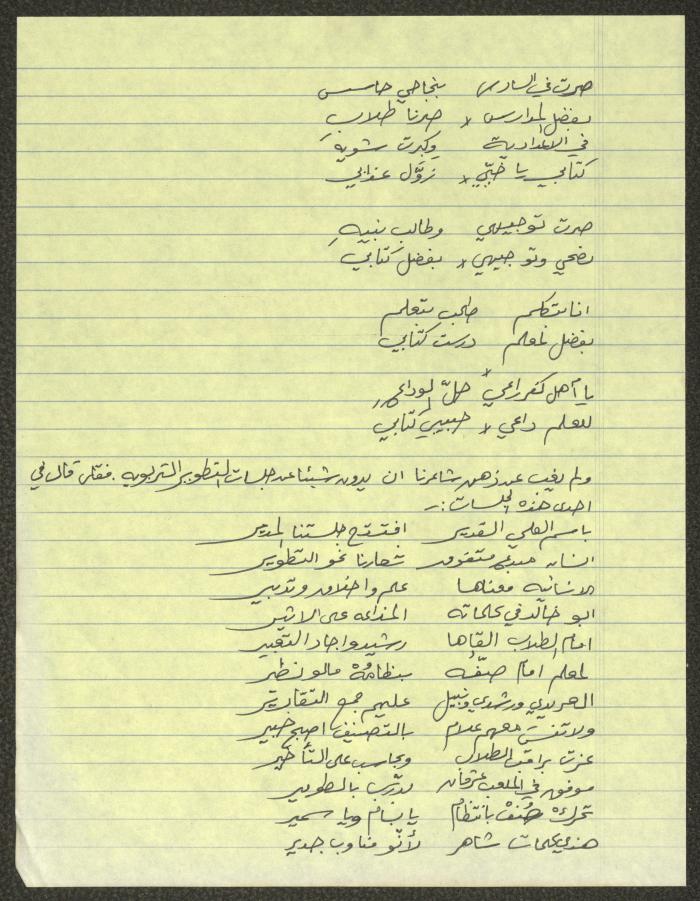 صرت في السادس بنجاحي حاسس
بفضل المدارس × صرنا طلاب
في الاعدادية وكبرت شويه
كتابي يا خيّي × زوّل عذابي
صرت توجيهي وطالب نبيه
نصحي وتوجيهي × بفضل كتابي
انا بتكلم طالب متعلم
بفضل لمعلم درست كتابي
يا أهل كفرراعي × حلّ لوداعي
للعلم داعي × حبيبي كتابي
ولم يغب عن ذهن شاعرنا ان يدون شيئا عن جلسات التطوير التربويه . فقد قال في
احدى هذه الجلسات :-
باسم العلي القدير افتتح جلستنا المدير
انسان مبدع متفوق شعارنا نحو التطوير
الانسانيه معناها علم واخلاق وتدبير
ابو خالد في كلماته المذاعه على الاثير
امام الطلاب القاها رشيد واجاد التعبير
لمعلم امام صفّه بنظامُهْ مالو نظير
ورشدي ونبيل عليهم جمع التقارير
ولا تنسَ معهم علام بالتصنيف اصبح خبير
عزت يراقب الطلاب ويحاسب على التأخير
موفق في الملعب عرفان يدرّب بالطوابير
تحركْ صُفْ بانتظام يا بسام ويا سمير
هذي كلمات شاهر لأنّو مناوب جدير